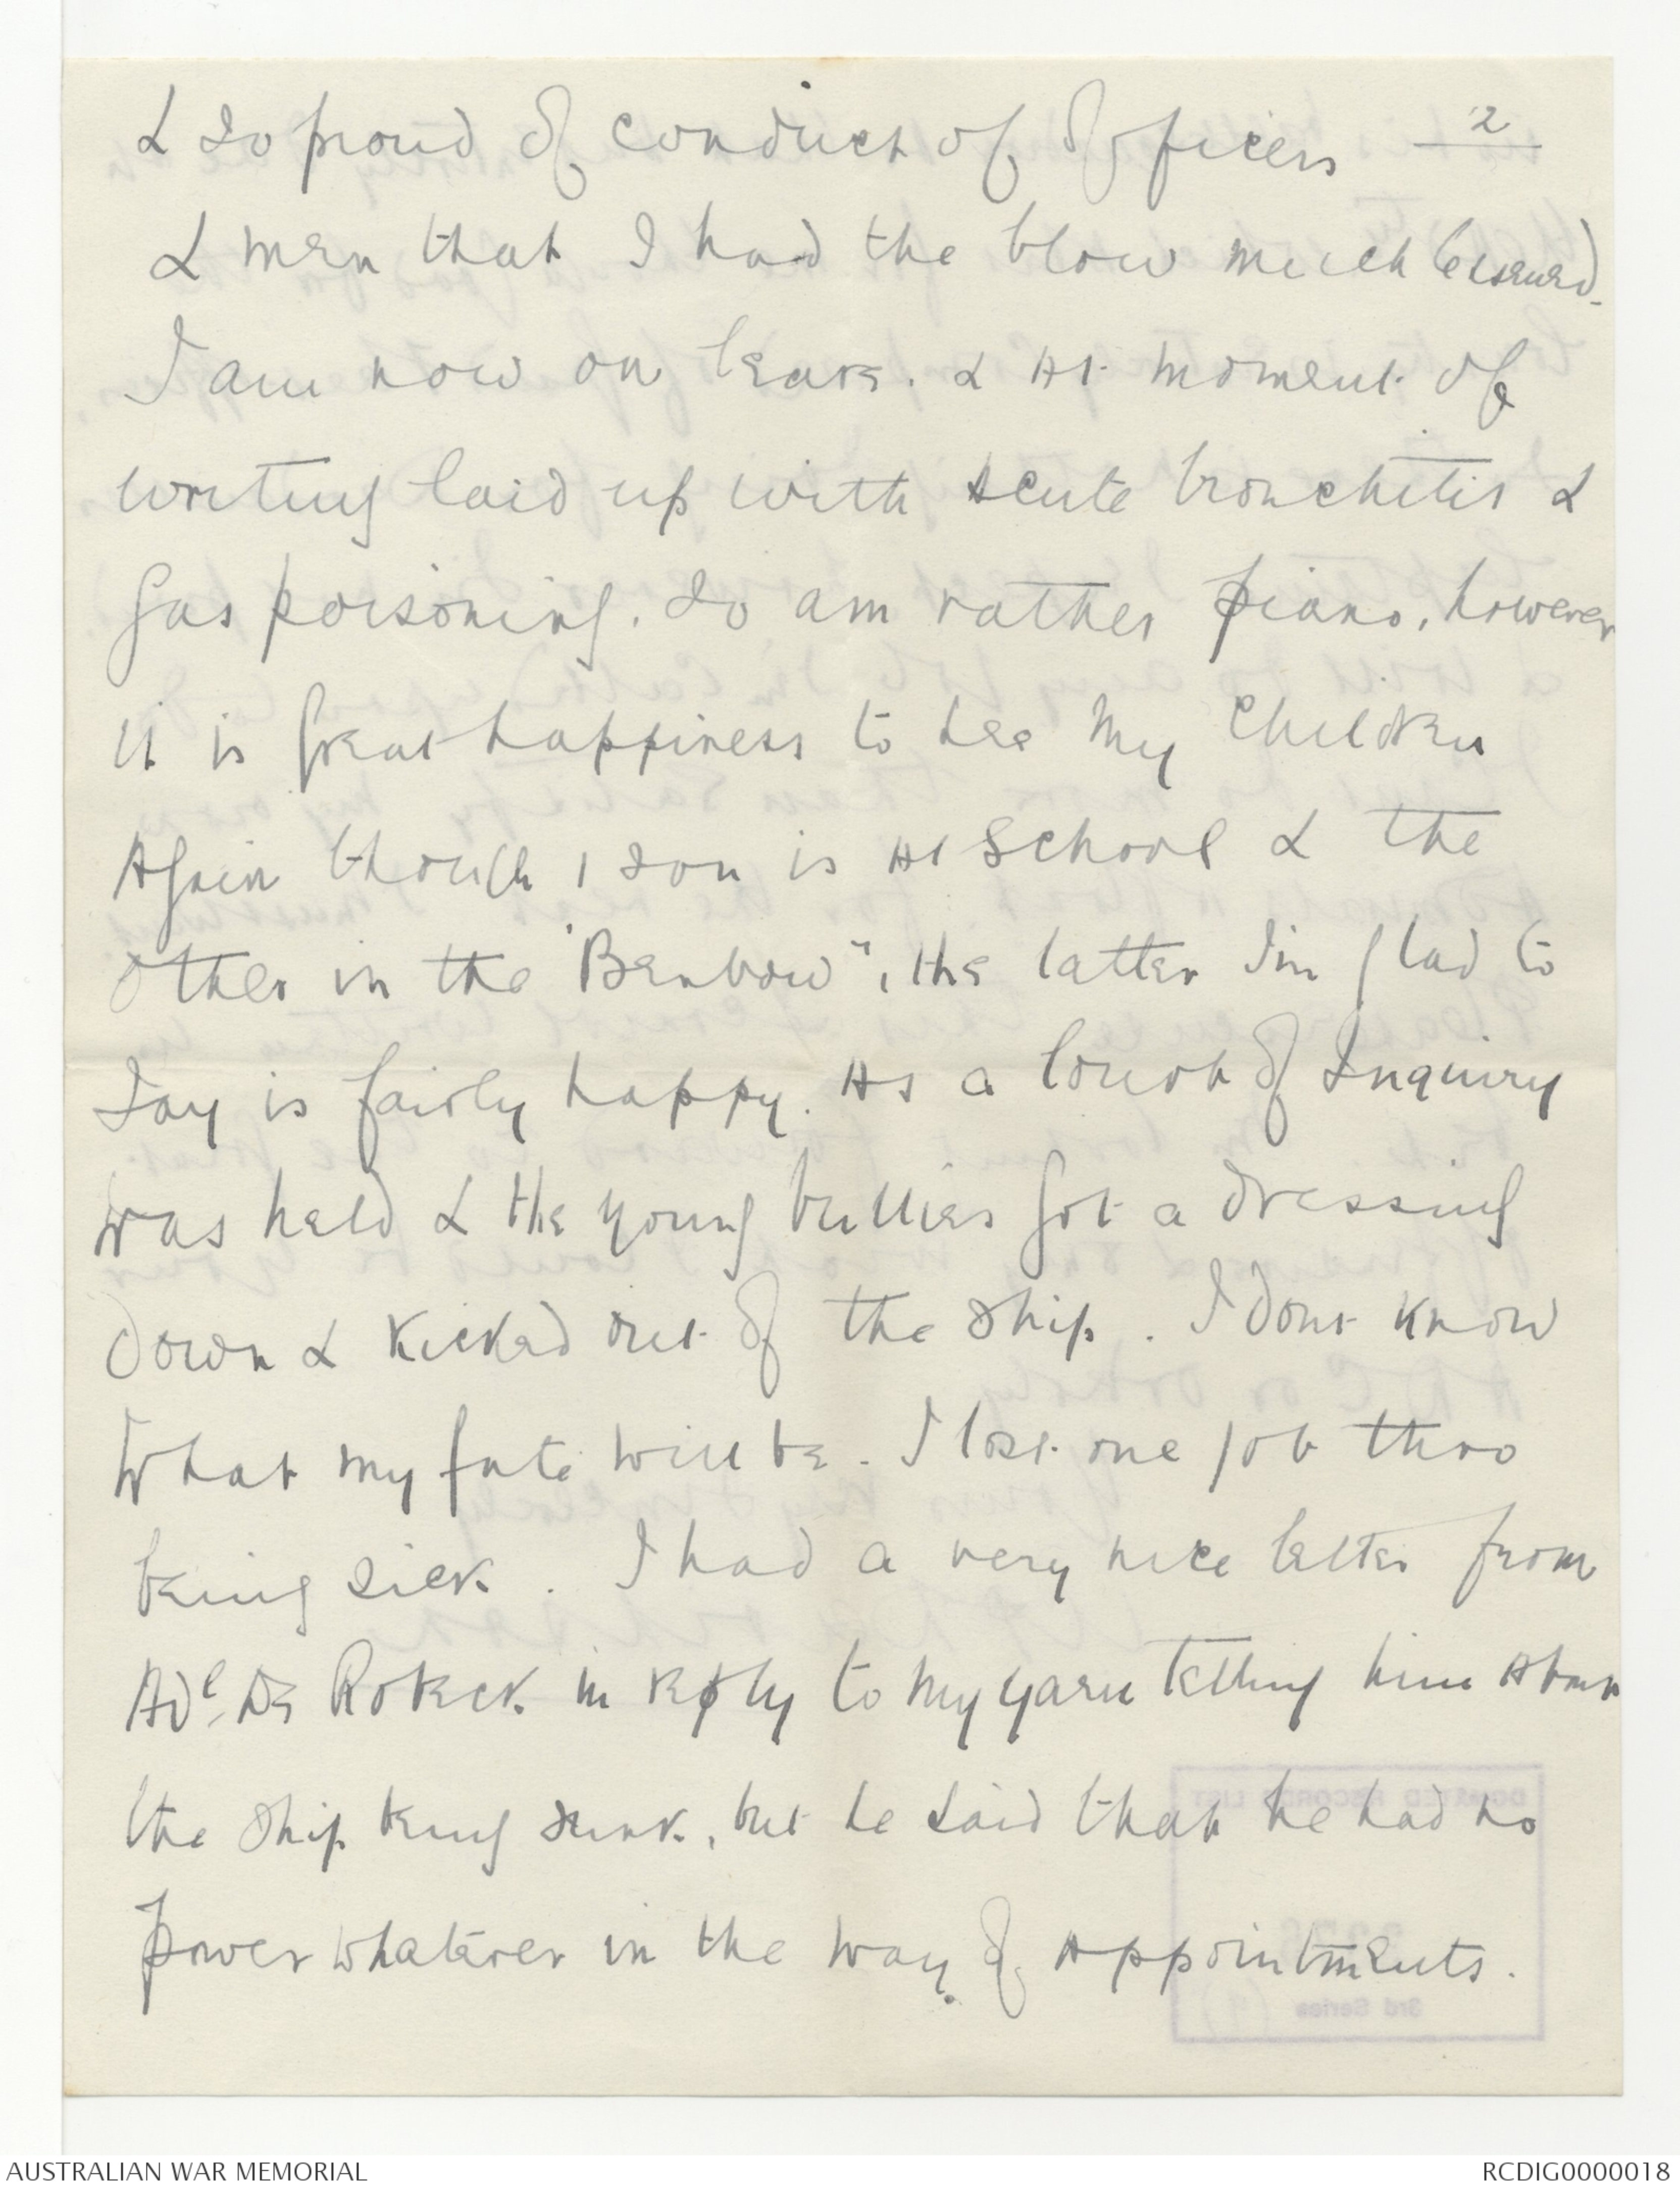 & so proud of conduct of officers 2
& men that I had the blow much lessened.
I am now on leave. & at moment of
writing laid up with acute bronchitis &
gas poisoning. So am rather piano, however
it is great happiness to see my children
again though 1 son is at school & the
other in the "Benbow", the latter I'm glad to
say is fairly happy. As a Court of Inquiry
was held & the young bullies got a dressing
down & kicked out of the ship. I dont know
what my fate will be. I lost one job thro
being sick. I had a very nice letter from
Adl. De Robeck in reply to my yarn telling him about
the ship being sunk, but he said that he had no
power whatever in the way of appointments.
DONATED RECORDS LIST
3rd Series
AUSTRALIAN WAR MEMORIAL
RCDIG0000018